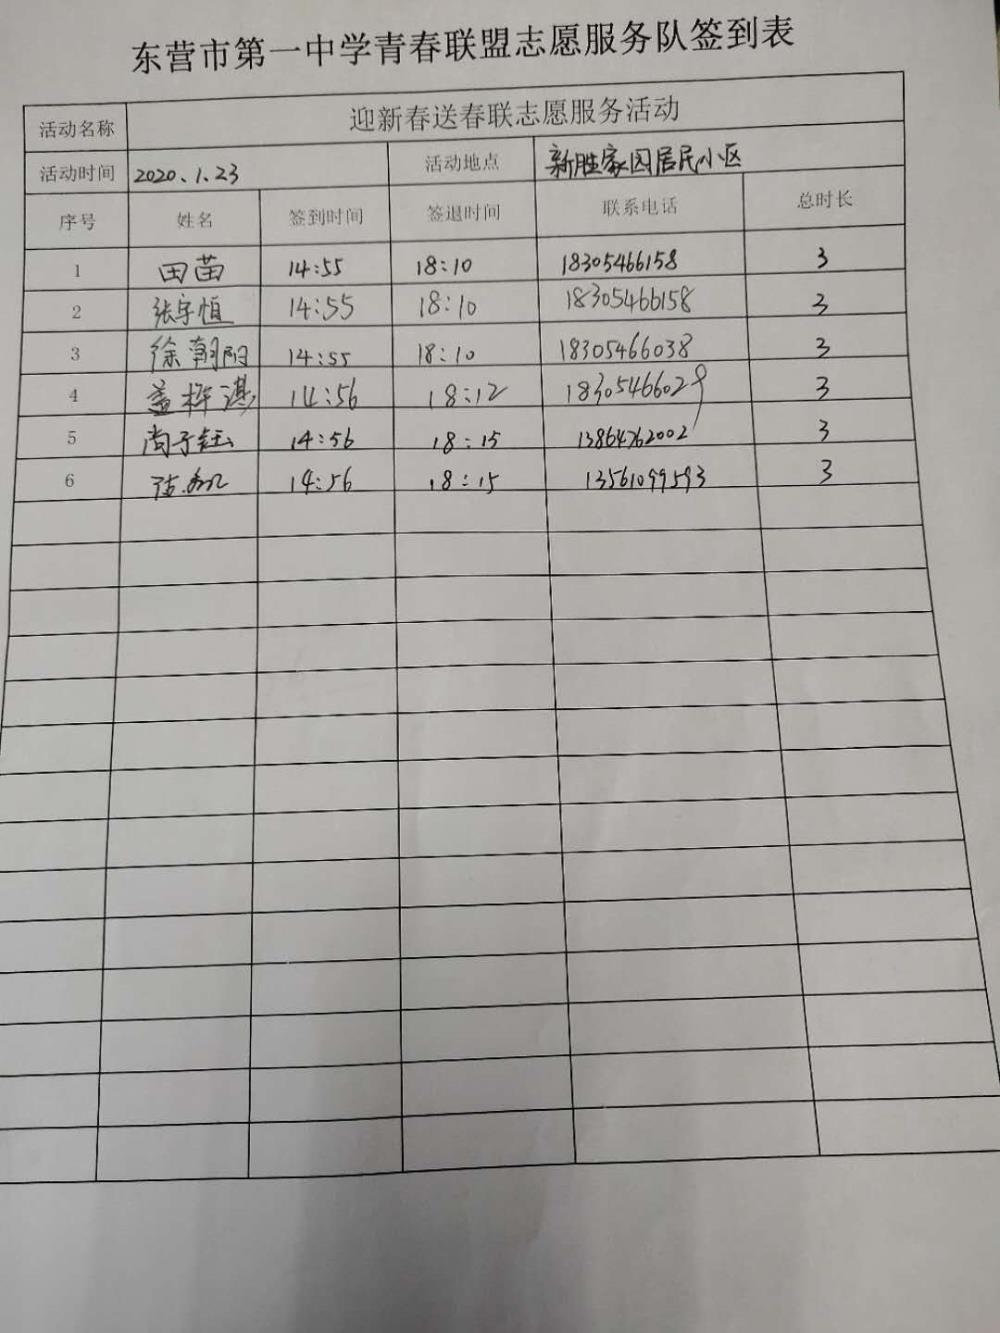 东营市第一中学青春联盟志愿服务队签到表
活动名称 迎新春送春联志愿服务活动
活动时间 2020.1.23 活动地点 新胜家园居民小区
序号 姓名 签到时间 签退时间 联系电话 总时长
1 田苗 14:55 18:10 18305466158 3
2 张宇恒 14:55 18:10 18305466158 3
3 徐朝阳 14:55 18:10 18305466038 3
4 盖梓湛 14:56 18:12 18305466029 3
5 尚子钰 14:56 18:15 13864762002 3
6 14:56 18:15 13561099593 3